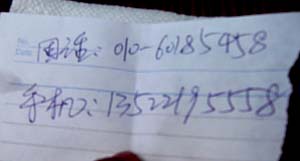 No.
Date
固话：010-60185458
手机：13522195558